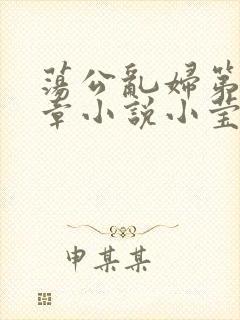 蕩公亂婦第
章小説小莹
申某某